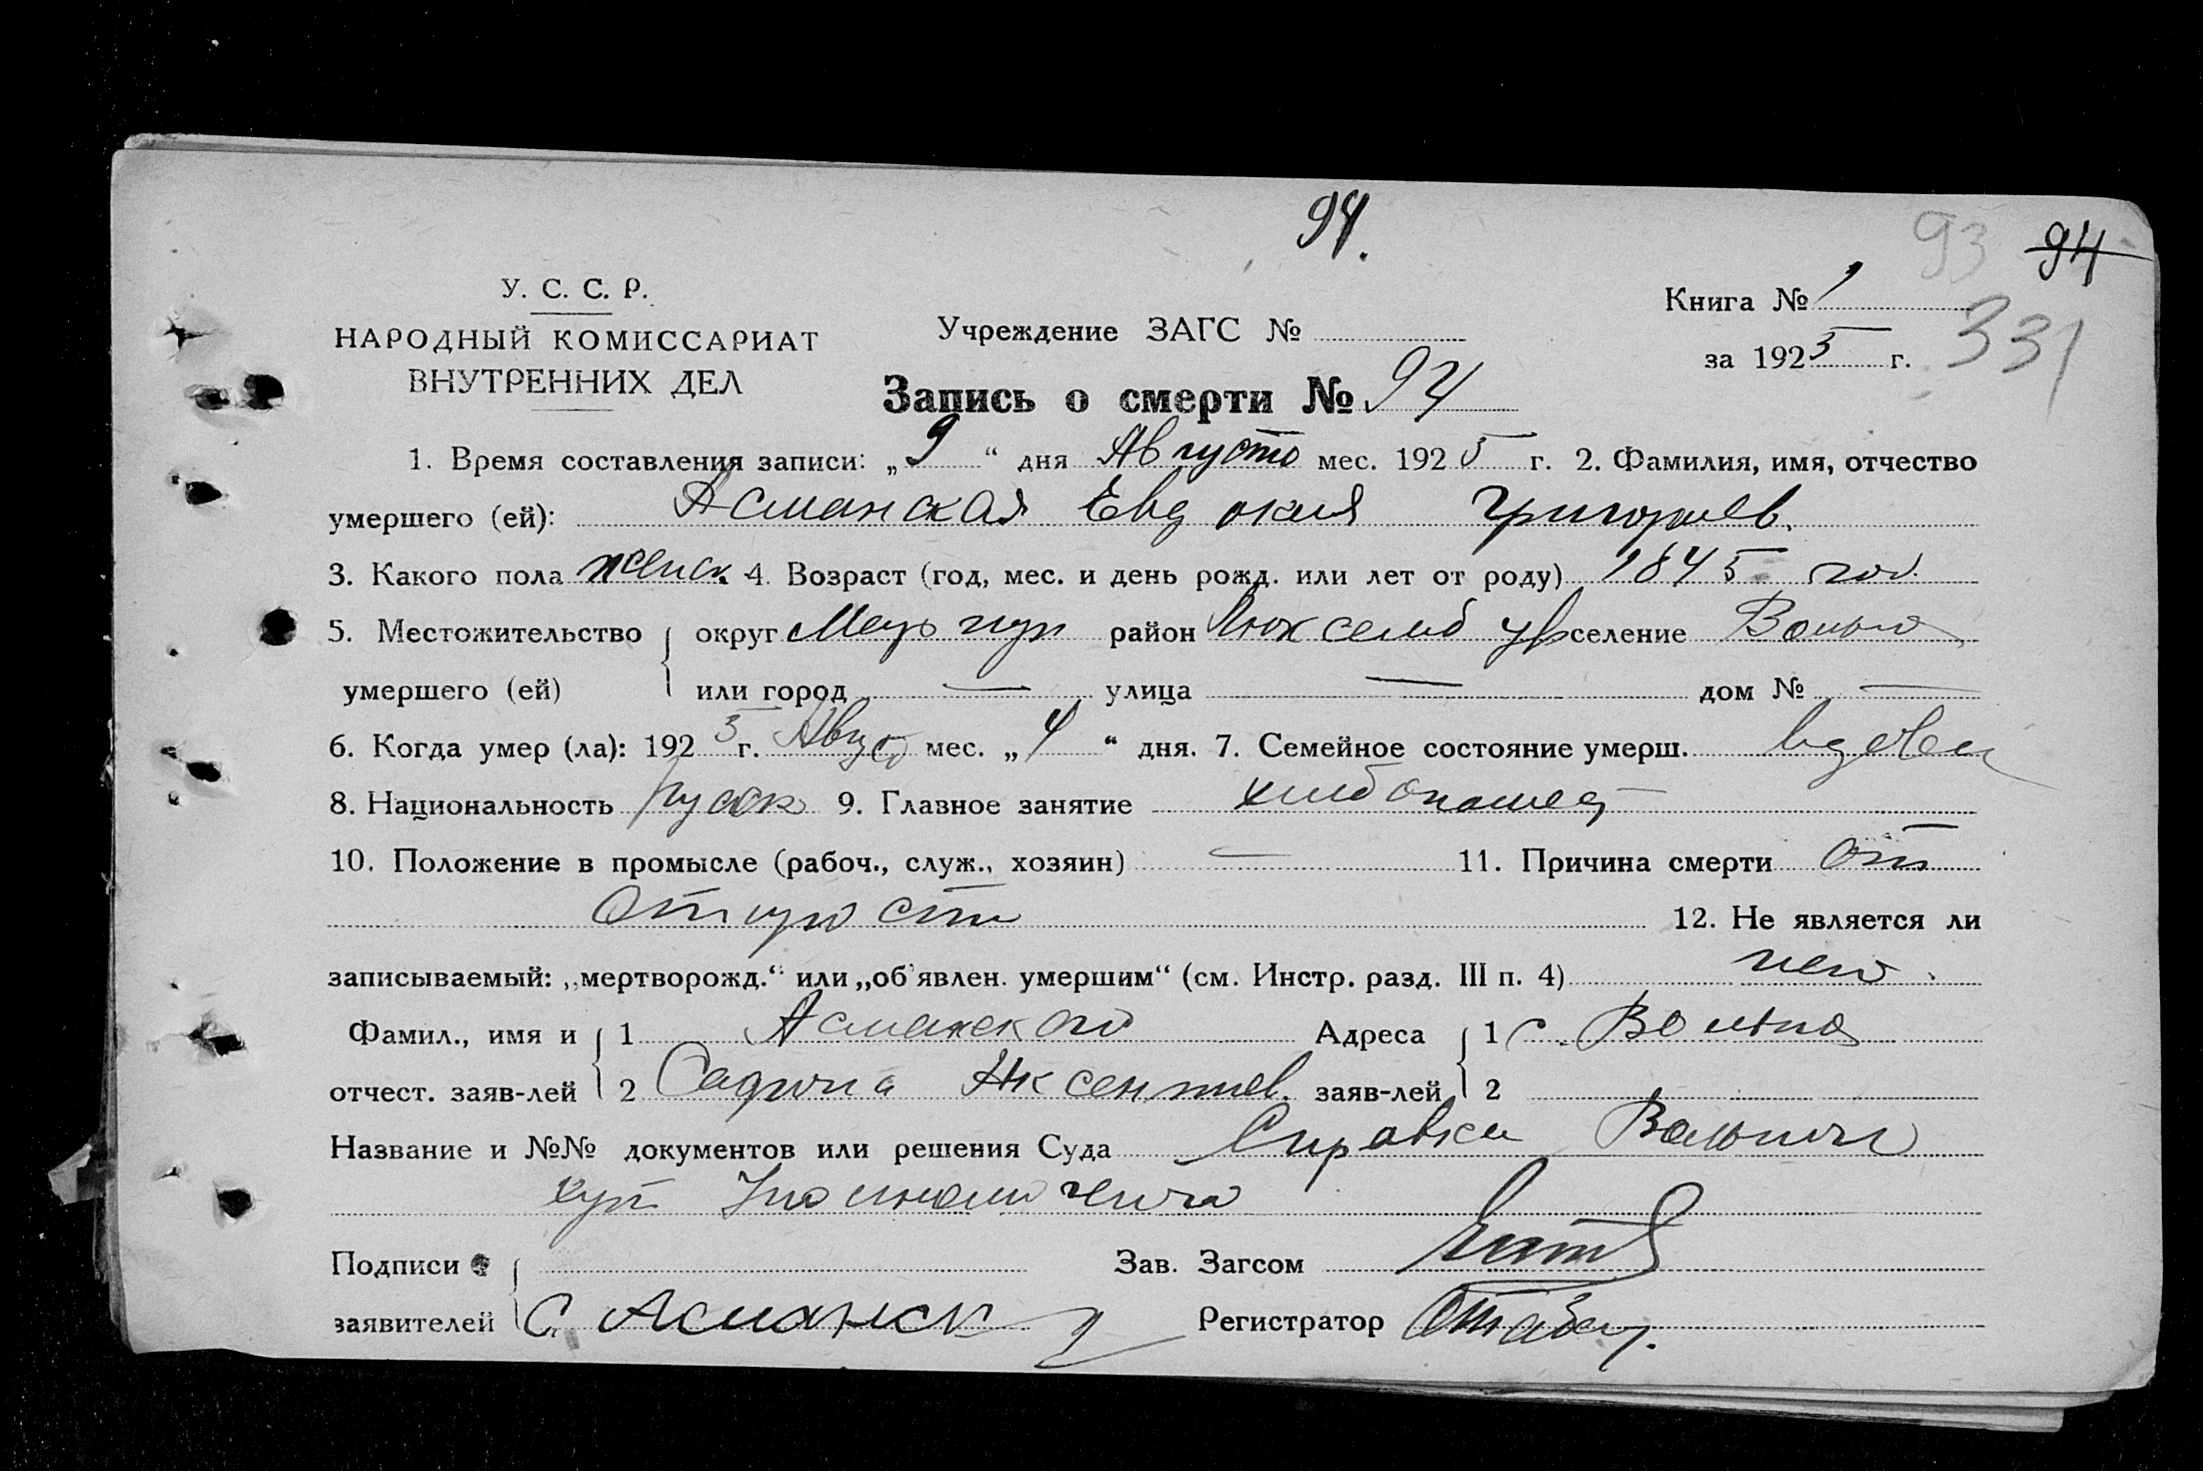 94.
93 94
У. С. С. Р.
НАРОДНЫЙ КОМИССАРИАТ
ВНУТРЕННИХ ДЕЛ
Учреждение ЗАГС №
Книга № 1
за 1925 г. 331
Запись о смерти № 94
1. Время составления записи: „ 9 “ дня Августа мес. 1925 г. 2. Фамилия, имя, отчество
умершего (ей): Асманская Евдокия Григориев.
3. Какого пола женск. 4. Возраст (год, мес. и день рожд. или лет от роду) 1845 год.
5. Местожительство округ район Люксемб селение
умершего (ей) или город — улица — дом № —
6. Когда умер (ла): 1925 г. Авгус мес. „ 4 “ дня. 7. Семейное состояние умерш. вдовец
8. Национальность русск 9. Главное занятие хлебопашец
10. Положение в промысле (рабоч., служ., хозяин) — 11. Причина смерти от
12. Не является ли
записываемый: „мертворожд.“ или „об'явлен. умершим“ (см. Инстр. разд. III п. 4) нет.
Фамил., имя и 1 Асманского Адреса 1 с.
отчест. заяв-лей 2 Аксентиев. заяв-лей 2
Название и №№ документов или решения Суда Справка
хут Уполномоченого
Подписи Зав. Загсом
заявителей С. Асманск Регистратор